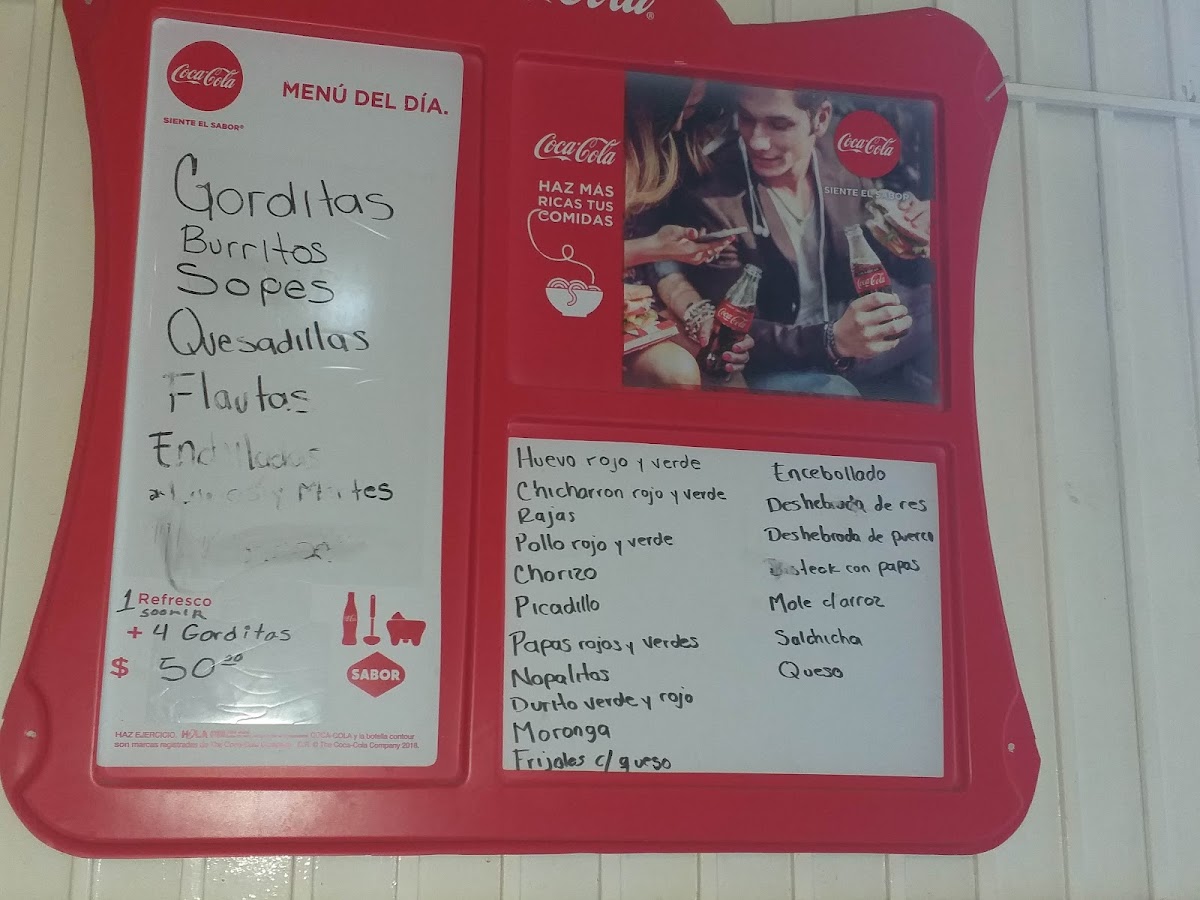 Coca-Cola
SIENTE EL SABOR®
MENÚ DEL DÍA.
Gorditas
Burritos
Sopes
Quesadillas
Flautas
y
1 Refresco
500mlR
+ 4 Gorditas
$ 50
SABOR
HAZ EJERCICIO.
son marcas registradas de The Coca-Cola Company 2018.
Coca-Cola
HAZ MÁS
RICAS TUS
COMIDAS
Coca-Cola
SIENTE EL SABOR
Coca-Cola
Coca-Cola
Huevo rojo y verde
Chicharron rojo y verde
Rajas
Pollo rojo y verde
Chorizo
Picadillo
Papas rojas y verdes
Nopalitos
Durito verde y rojo
Moronga
Frijoles c/ queso
Encebollado
Deshebrada de res
Deshebrada de puerco
Bisteck con papas
Mole c/arroz
Salchicha
Queso